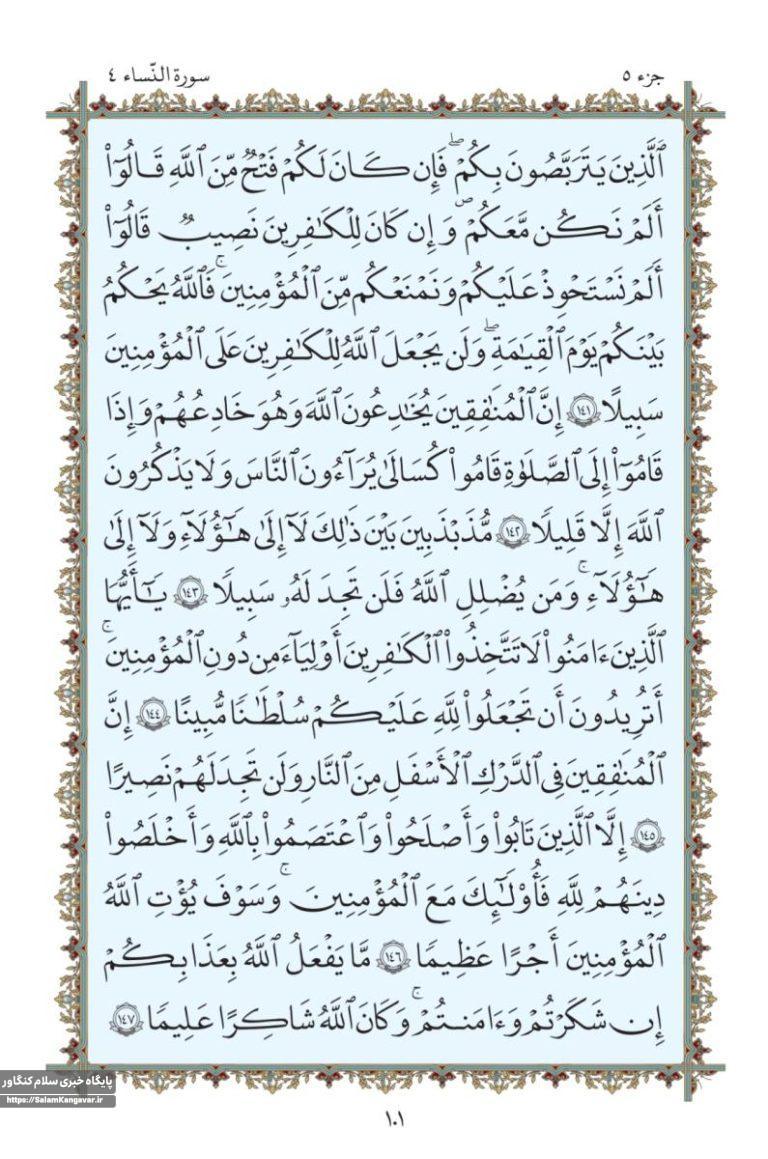 جزء ٥
سورة النّساء ٤
ٱلَّذِينَ يَتَرَبَّصُونَ بِكُمۡ فَإِن كَانَ لَكُمۡ فَتۡحٞ مِّنَ ٱللَّهِ قَالُوٓاْ
أَلَمۡ نَكُن مَّعَكُمۡ وَإِن كَانَ لِلۡكَٰفِرِينَ نَصِيبٞ قَالُوٓاْ
أَلَمۡ نَسۡتَحۡوِذۡ عَلَيۡكُمۡ وَنَمۡنَعۡكُم مِّنَ ٱلۡمُؤۡمِنِينَۚ فَٱللَّهُ يَحۡكُمُ
بَيۡنَكُمۡ يَوۡمَ ٱلۡقِيَٰمَةِۗ وَلَن يَجۡعَلَ ٱللَّهُ لِلۡكَٰفِرِينَ عَلَى ٱلۡمُؤۡمِنِينَ
سَبِيلًا ١٤١ إِنَّ ٱلۡمُنَٰفِقِينَ يُخَٰدِعُونَ ٱللَّهَ وَهُوَ خَٰدِعُهُمۡ وَإِذَا
قَامُوٓاْ إِلَى ٱلصَّلَوٰةِ قَامُواْ كُسَالَىٰ يُرَآءُونَ ٱلنَّاسَ وَلَا يَذۡكُرُونَ
ٱللَّهَ إِلَّا قَلِيلٗا ١٤٢ مُّذَبۡذَبِينَ بَيۡنَ ذَٰلِكَ لَآ إِلَىٰ هَٰٓؤُلَآءِ وَلَآ إِلَىٰ
هَٰٓؤُلَآءِۚ وَمَن يُضۡلِلِ ٱللَّهُ فَلَن تَجِدَ لَهُۥ سَبِيلٗا ١٤٣ يَٰٓأَيُّهَا
ٱلَّذِينَ ءَامَنُواْ لَا تَتَّخِذُواْ ٱلۡكَٰفِرِينَ أَوۡلِيَآءَ مِن دُونِ ٱلۡمُؤۡمِنِينَۚ
أَتُرِيدُونَ أَن تَجۡعَلُواْ لِلَّهِ عَلَيۡكُمۡ سُلۡطَٰنٗا مُّبِينًا ١٤٤ إِنَّ
ٱلۡمُنَٰفِقِينَ فِي ٱلدَّرۡكِ ٱلۡأَسۡفَلِ مِنَ ٱلنَّارِ وَلَن تَجِدَ لَهُمۡ نَصِيرًا
١٤٥ إِلَّا ٱلَّذِينَ تَابُواْ وَأَصۡلَحُواْ وَٱعۡتَصَمُواْ بِٱللَّهِ وَأَخۡلَصُواْ
دِينَهُمۡ لِلَّهِ فَأُوْلَٰٓئِكَ مَعَ ٱلۡمُؤۡمِنِينَۚ وَسَوۡفَ يُؤۡتِ ٱللَّهُ
ٱلۡمُؤۡمِنِينَ أَجۡرًا عَظِيمٗا ١٤٦ مَّا يَفۡعَلُ ٱللَّهُ بِعَذَابِكُمۡ
إِن شَكَرۡتُمۡ وَءَامَنتُمۡۚ وَكَانَ ٱللَّهُ شَاكِرًا عَلِيمٗا ١٤٧
پایگاه خبری سلام کنگاور
https://SalamKangavar.ir
١٠١